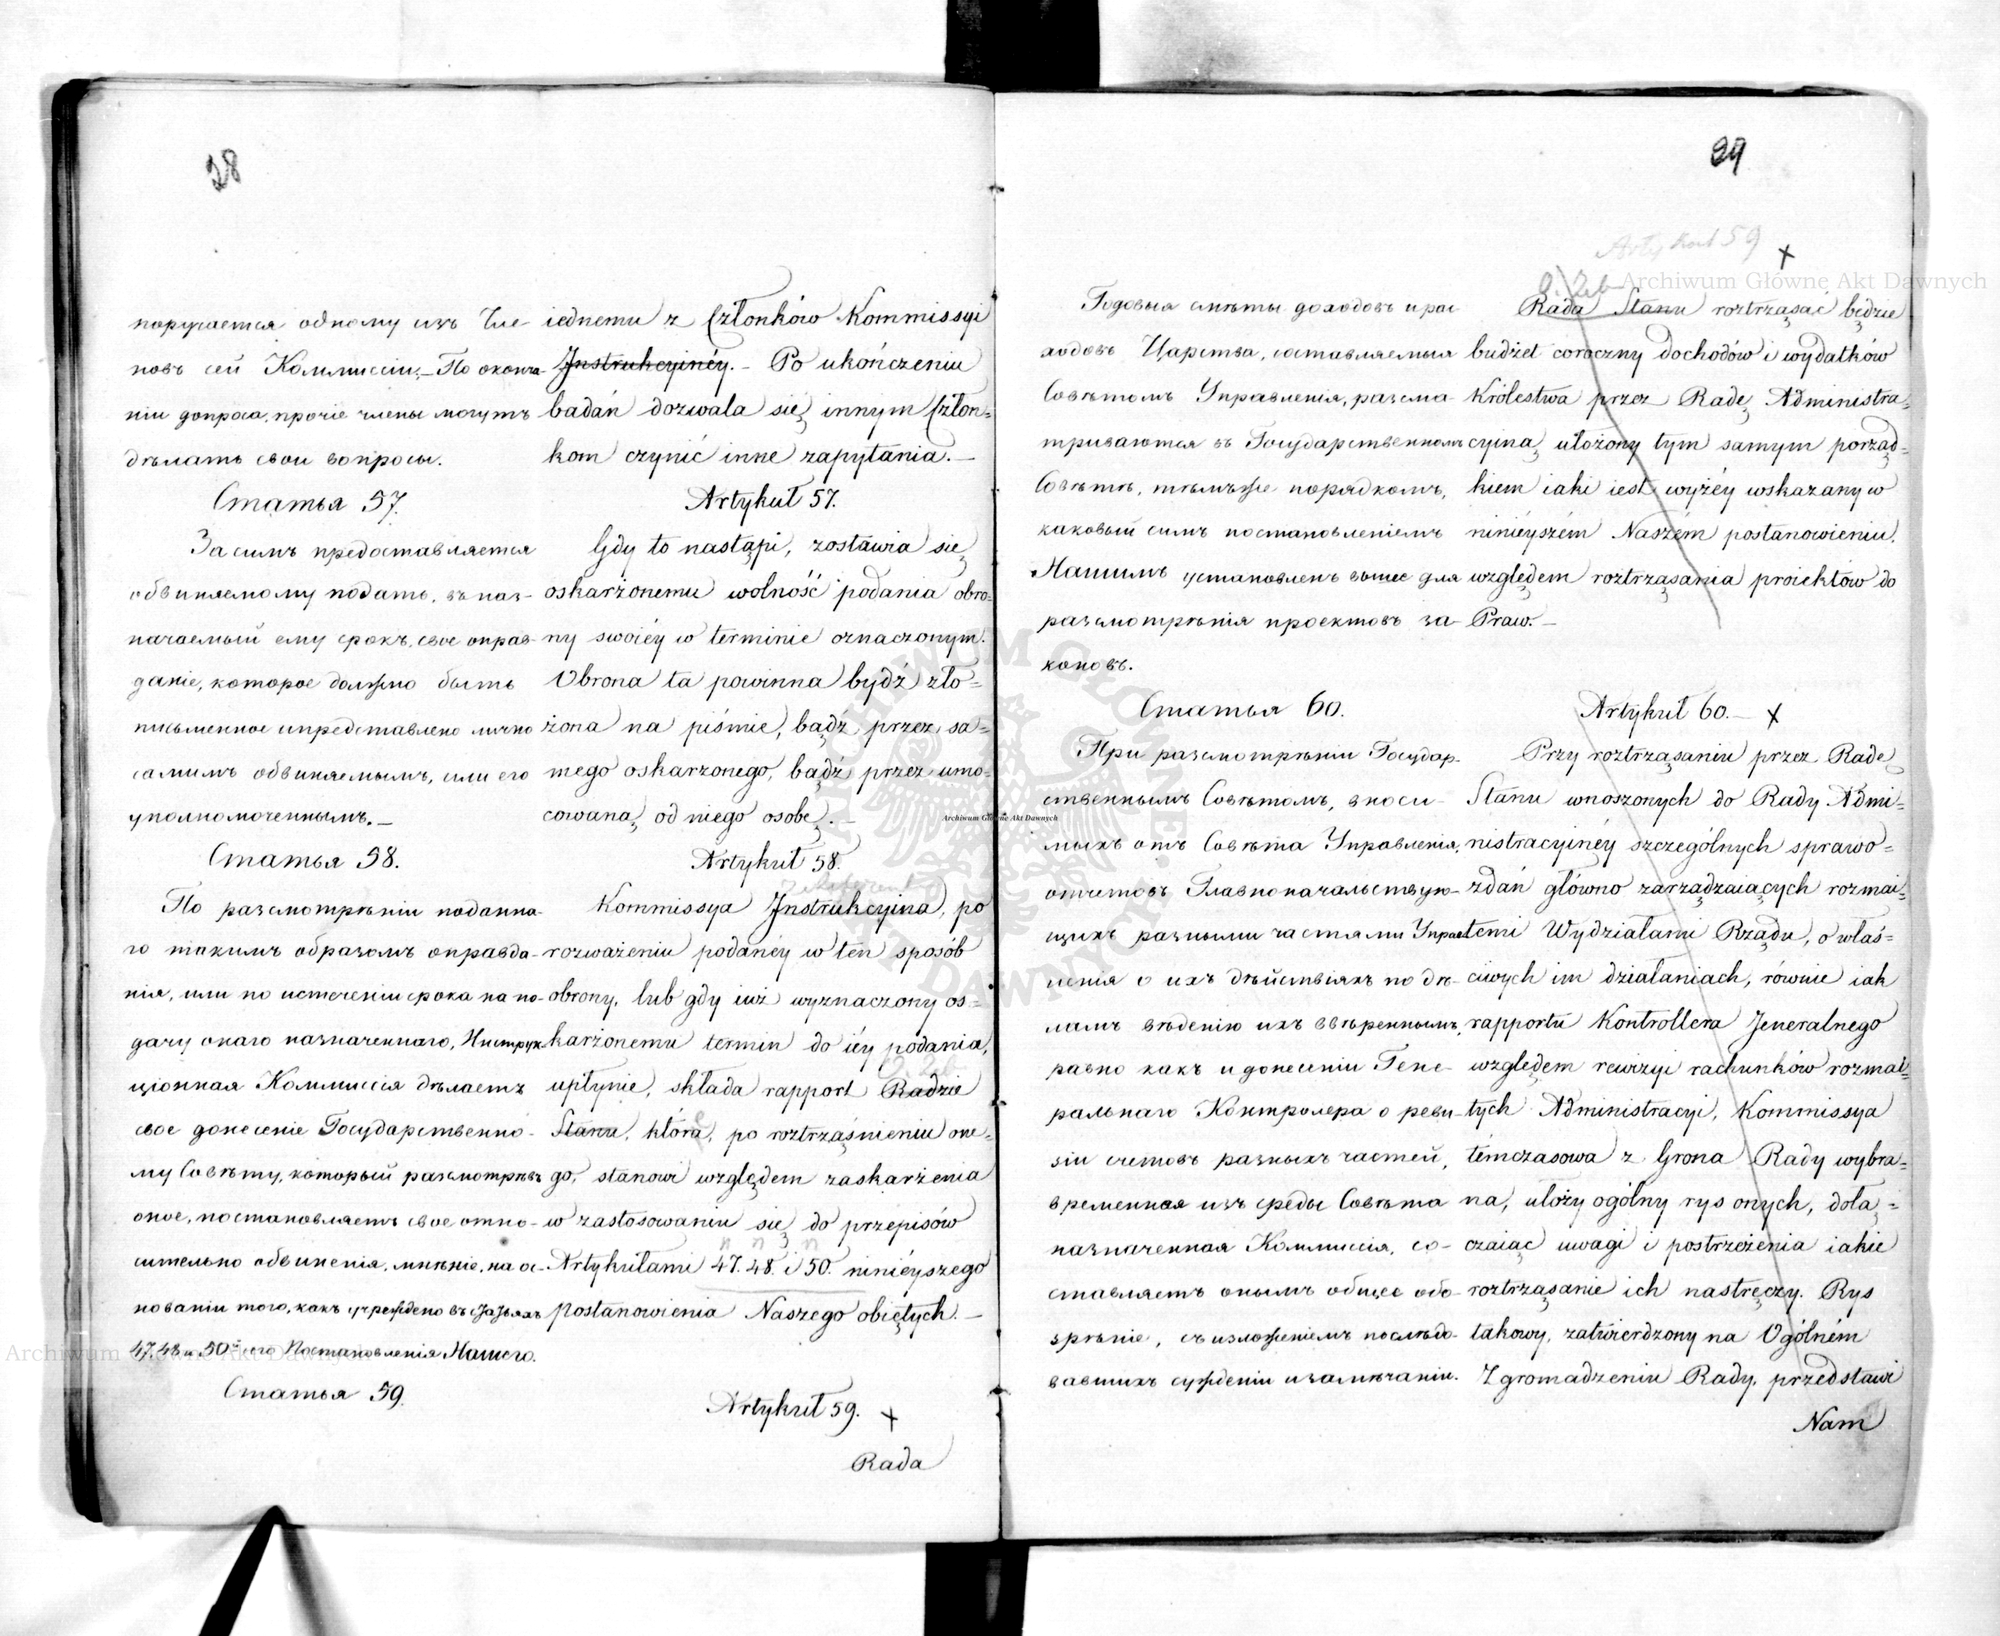 28
поручается одному изъ Чле-
новъ сей Коммиссіи. – По оконча-
ніи допроса, прочіе члены могутъ
дѣлать свои вопросы.
Статья 57.
За симъ предоставляется
обвиняемому подать, въ наз-
начаемый ему срокъ, свое оправ-
даніе, которое должно быть
письменное и представлено лично
самимъ обвиняемымъ, или его
уполномоченнымъ. –
Статья 58.
По разсмотрѣніи поданна-
го такимъ образомъ оправда-
нія, или по истеченіи срока на по-
дачу онаго назначеннаго, Инструк-
ціонная Коммиссія дѣлаетъ
свое донесеніе Государственно-
му Совѣту, который разсмотрѣвъ
оное, постановляетъ свое отно-
сительно обвиненія, мнѣніе, на ос-
нованіи того, какъ учреждено въ статьяхъ
47. 48 и 50й сего Постановленія Нашего.
Статья 59.
iednemu z Członków Kommissyi
Instrukcyinéy. – Po ukończeniu
badań dozwala się innym Człon=
kom czynić inne zapytania. –
Artykuł 57.
Gdy to nastąpi, zostawia się
oskarżonemu wolność podania obro=
ny swoiéy w terminie oznaczonym.
Obrona ta powinna bydź zło=
żona na piśmie, bądź przez sa=
mego oskarżonego, bądź przez umo=
cowaną od niego osobę. –
Artykuł 58.
Kommissya Instrukcyina, po
rozważeniu podanéy w ten sposób
obrony, lub gdy iuż wyznaczony os=
karżonemu termin do iéy podania,
upłynie, składa rapport Radzie
Stanu, która, po roztrząśnieniu one=
go, stanowi względem zaskarżenia
w zastosowaniu się do przepisów
Artykułami 47. 48. i 50. ninieyszego
Postanowienia Naszego obiętych. –
Artykuł 59. x
Rada
29
Artykuł 59 x
Годовыя смѣты доходовъ и рас-
ходовъ Царства, составляемыя
Совѣтомъ Управленія, разсма-
триваются въ Государственномъ
Совѣтѣ, тѣмъ же порядкомъ,
каковый симъ постановленіемъ
Нашимъ установленъ выше для
разсмотрѣнія проектовъ за-
коновъ.
Статья 60.
При разсмотрѣніи Государ-
ственнымъ Совѣтомъ, вноси-
мыхъ отъ Совѣта Управленія,
отчетовъ Главноначальствую-
щихъ разными частями Управ-
ленія о ихъ дѣйствіяхъ по дѣ-
ламъ вѣденію ихъ ввѣреннымъ,
равно какъ и донесеніи Гене-
ральнаго Контролера о реви-
зіи счетовъ разныхъ частей,
временная изъ среды Совѣта
назначенная Коммиссія, со-
ставляетъ онымъ общее обо-
зрѣніе, съ изложеніемъ послѣдо-
вавшихъ сужденіи и замѣчаніи.
Rada Stanu roztrząsać będzie
budżet coroczny dochodów i wydatków
Królestwa przez Radę Administra=
cyiną ułożony tym samym porząd=
kiem iaki iest wyżéy wskazany w
ninieyszém Naszém postanowieniu,
względem roztrząsania proiektów do
Praw. –
Artykuł 60. – x
Przy roztrząsaniu przez Radę
Stanu wnoszonych do Rady Admi=
nistracyinéy szczególnych sprawo=
zdań główno zarządzaiących rozmai=
temi Wydziałami Rządu, o właś=
ciwych im działaniach, równie iak
rapportu Kontrollera Jeneralnego
względem rewizyi rachunków rozmai=
tych Administracyi, Kommissya
témczasowa z Grona Rady wybra=
na, ułoży ogólny rys onych, dołą=
czaiąc uwagi i postrzeżenia iakie
roztrząsanie ich nastręczy. Rys
takowy, zatwierdzony na Ogólném
Zgromadzeniu Rady, przedstawi
Nam